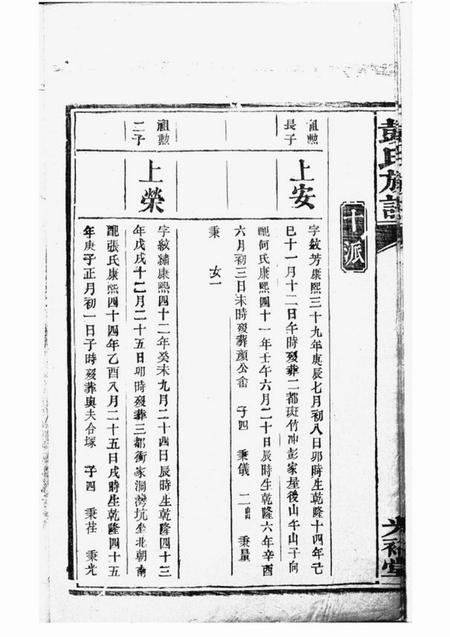 彭氏族譜
十派
祖勲
長子
上安
字敘芳康熙三十九年庚辰七月初八日卯時生乾隆十四年己
巳十一月十二日午時歿葬二都斑竹冲彭家屋後山午山子向
配何氏康熙四十一年壬午六月二十日辰時生乾隆六年辛酉
六月初三日未時歿葬顏公侖 子四 秉儀 二 秉量
秉 女一
祖勲
二子
上榮
字敘繡康熙四十二年癸未九月二十四日辰時生乾隆四十三
年戊戌十二月二十五日卯時歿葬三都衝家洞灣坑坐北朝南
配張氏康熙四十四年乙酉八月二十五日戌時生乾隆四十五
年庚子正月初一日子時歿葬與夫合塚 子四 秉荏 秉光